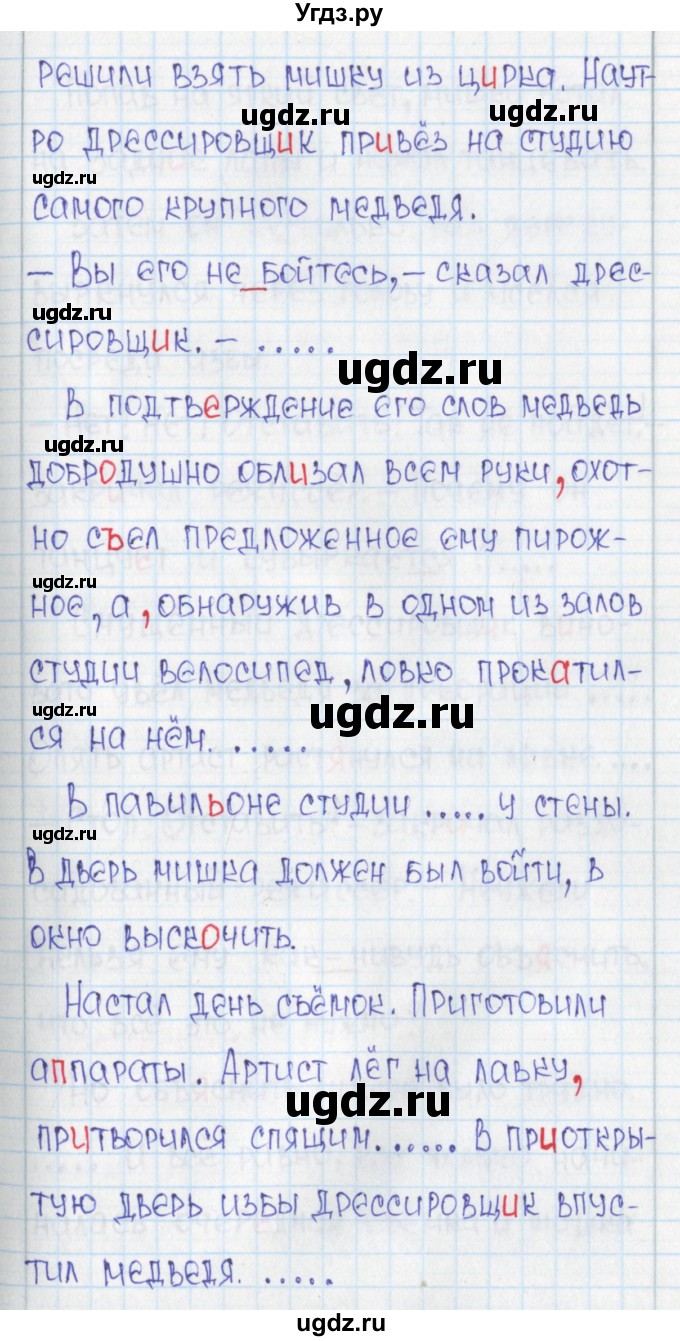 Угдз.ру
решили взять мишку из цирка. Наут-
ugdz.ru ugdz.ru
ро дрессировщик привёз на студию
ugdz.ru
самого крупного медведя.
– Вы его не бойтесь, – сказал дрес-
сировщик. – .....
ugdz.ru
В подтверждение его слов медведь
ugdz.ru
добродушно облизал всем руки, охот-
но съел предложенное ему пирож-
ugdz.ru
ное, а, обнаружив в одном из залов
студии велосипед, ловко прокатил-
ugdz.ru ugdz.ru
ся на нём. .....
В павильоне студии ..... у стены.
ugdz.ru
В дверь мишка должен был войти, в
окно выскочить.
Настал день съёмок. Приготовили
аппараты. Артист лёг на лавку,
ugdz.ru
притворился спящим. ..... В приоткры-
тую дверь избы дрессировщик впус-
тил медведя. .....
ugdz.ru